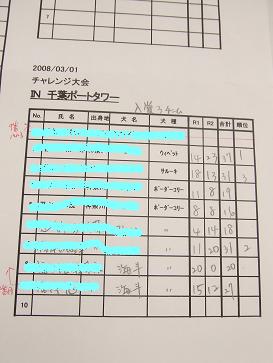 7
2008/03/01
チャレンジ大会
IN 千葉ポートタワー
入賞3チーム
No. 氏名 出身地 犬名 犬種 R1 R2 合計 順位
ウィペット 14 23 37 1
サルーキ 18 13 31 3
ボーダーコリー 11 8 19
ボーダーコリー 8 8 16
〃 4 14 18
〃 11 20 31 2
海斗 〃 20 0 20
海斗 〃 15 12 27
10